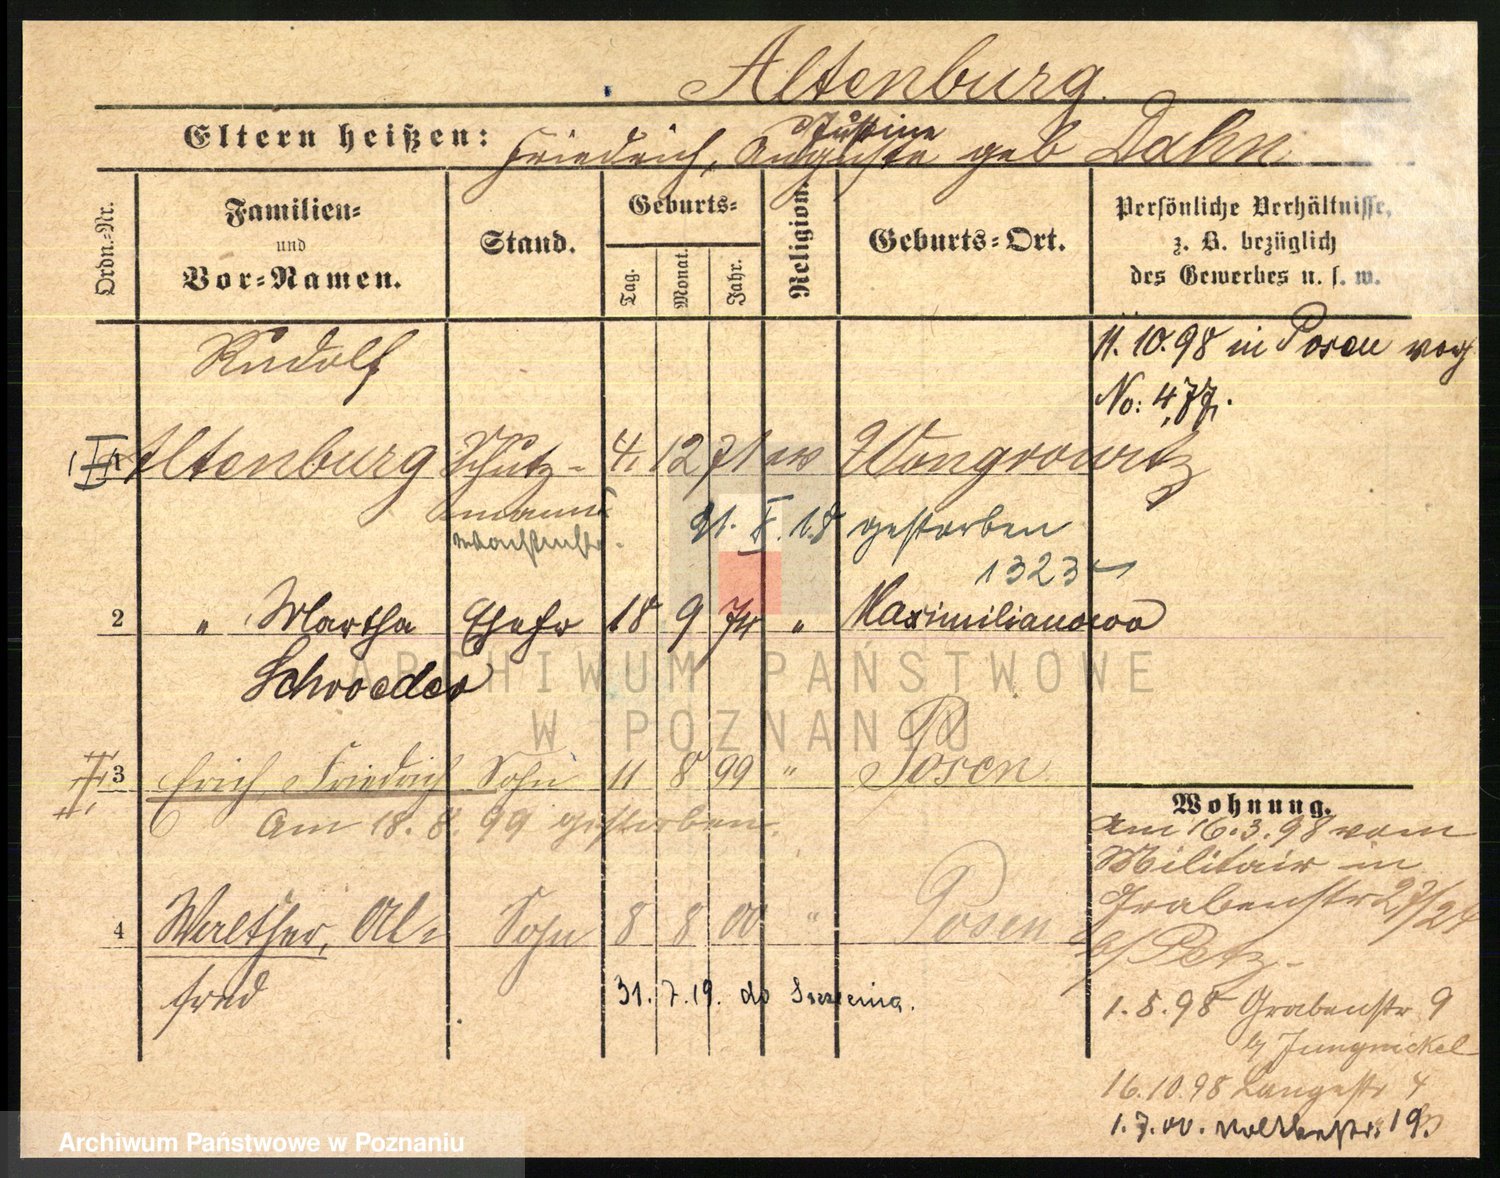 Altenburg.
Eltern heißen: Friedrich, Auguste Justine geb Dahn
Ordn.-Nr.
Familien-
und
Vor-Namen.
Stand.
Geburts-
Tag.
Monat.
Jahr.
Religion.
Geburts-Ort.
Persönliche Verhältnisse,
z. B. bezüglich
des Gewerbes u. s. w.
Rudolf
11.10.98 in Posen
No: 477.
1 Altenburg Schutz- 4. 12 71 ev Wongrowitz
mann
21. X. 18 gestorben
1323
2 " Martha Ehefr 18 9 74 " Maximilianowo
Schroeder
3 Erich Friedrich Sohn 11 8 99 " Posen
Am 18. 8. 99 gestorben.
4 Walther, Al- Sohn 8 8 00 " Posen
fred
31. 7. 19. do
Wohnung.
Am 16.3.98 vom
Militair in
Grabenstr 27/24
b/ Petz-
1.5.98 Grabenstr 9
b/ Jungnickel
16.10.98 Langestr 4
1.7.00. 19.
ARCHIWUM PAŃSTWOWE
W POZNANIU
Archiwum Państwowe w Poznaniu